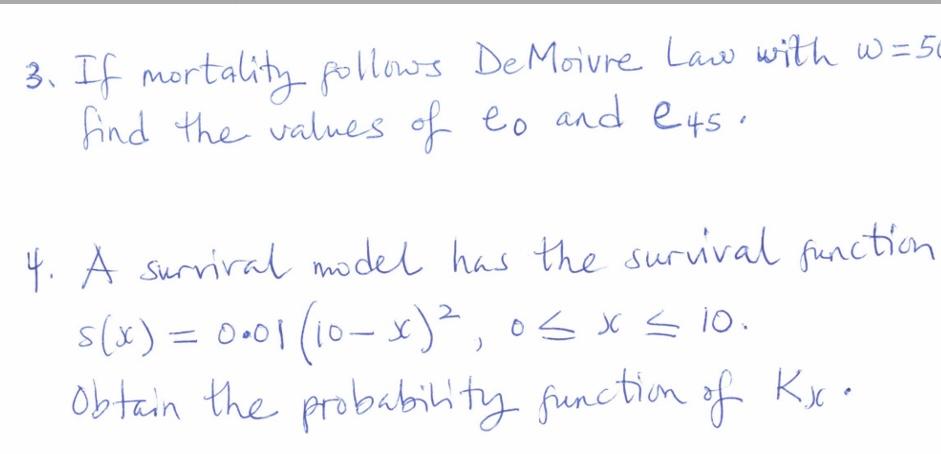 3. If mortality follows DeMoivre Law with w=5
find the values of e₀ and e₄₅.
4. A survival model has the survival function
s(x) = 0.01 (10-x)², 0 ≤ x ≤ 10.
Obtain the probability function of Kₓ.